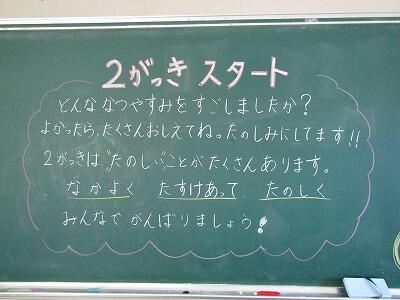 2がっき スタート
どんな なつやすみを すごしましたか?
よかったら、たくさん おしえてね。たのしみにしてます!!
2がっきは、"たのしい"ことが たくさん あります。
なかよく たすけあって、たのしく
みんなで がんばりましょう!